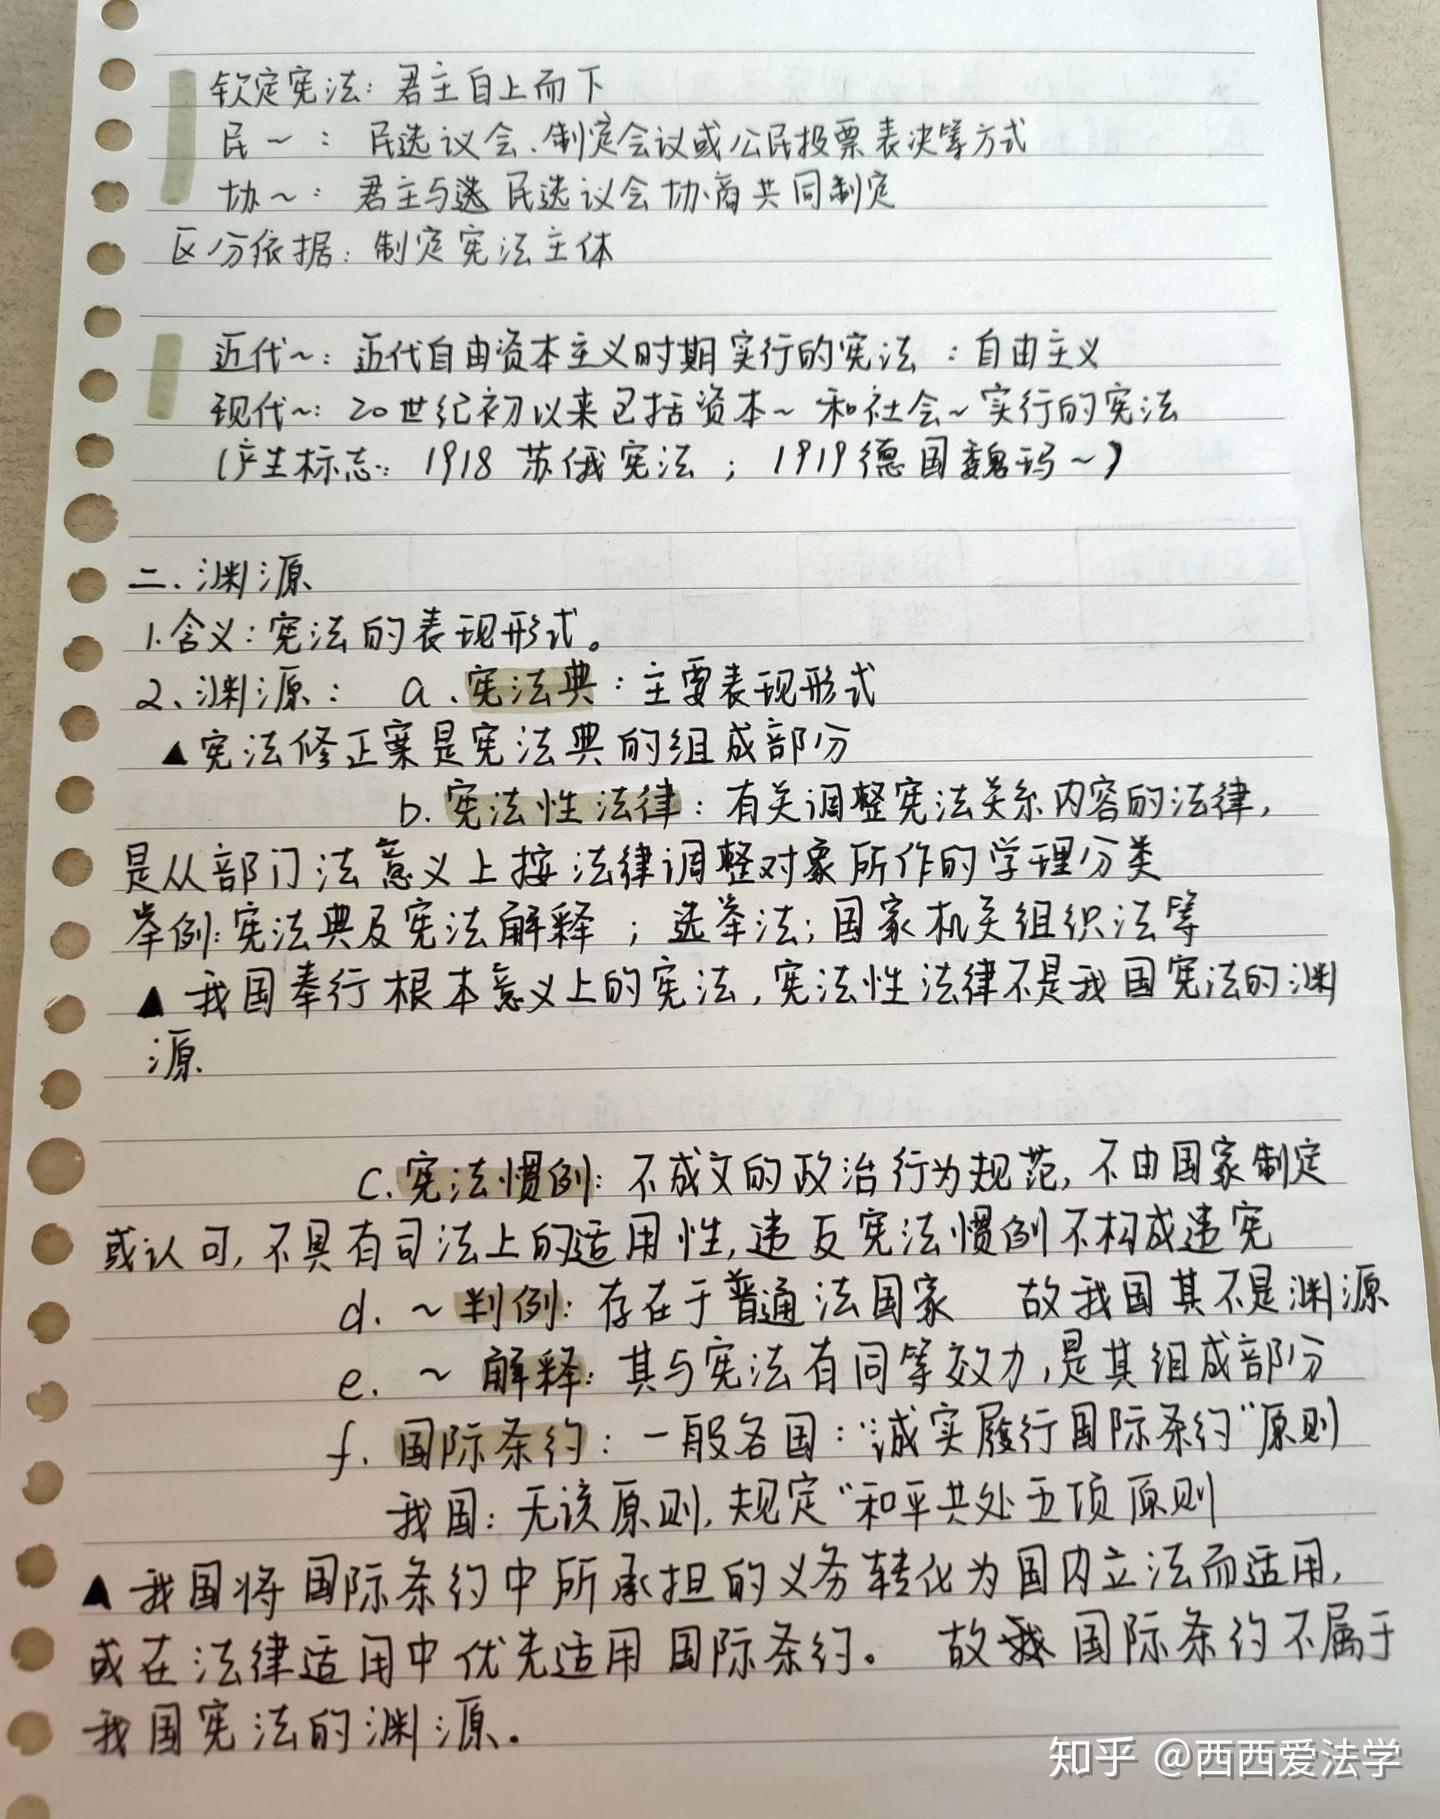 钦定宪法：君主自上而下
民～：民选议会、制定会议或公民投票表决等方式
协～：君主与选民选议会协商共同制定
区分依据：制定宪法主体
近代～：近代自由资本主义时期实行的宪法：自由主义
现代～：20世纪初以来已括资本～和社会～实行的宪法
(产生标志：1918苏俄宪法；1919德国魏玛～)
二.渊源
1.含义：宪法的表现形式。
2、渊源：a.宪法典：主要表现形式
▲宪法修正案是宪法典的组成部分
b.宪法性法律：有关调整宪法关系内容的法律，
是从部门法意义上按法律调整对象所作的学理分类
举例：宪法典及宪法解释；选举法；国家机关组织法等
▲我国奉行根本意义上的宪法，宪法性法律不是我国宪法的渊
源.
c.宪法惯例：不成文的政治行为规范，不由国家制定
或认可，不具有司法上的适用性，违反宪法惯例不构成违宪
d.～判例：存在于普通法国家 故我国其不是渊源
e.～解释：其与宪法有同等效力，是其组成部分
f.国际条约：一般各国：“诚实履行国际条约”原则
我国：无该原则，规定“和平共处五项原则
▲我国将国际条约中所承担的义务转化为国内立法而适用，
或在法律适用中优先适用国际条约。 故国际条约不属于
我国宪法的渊源.
知乎 @西西爱法学